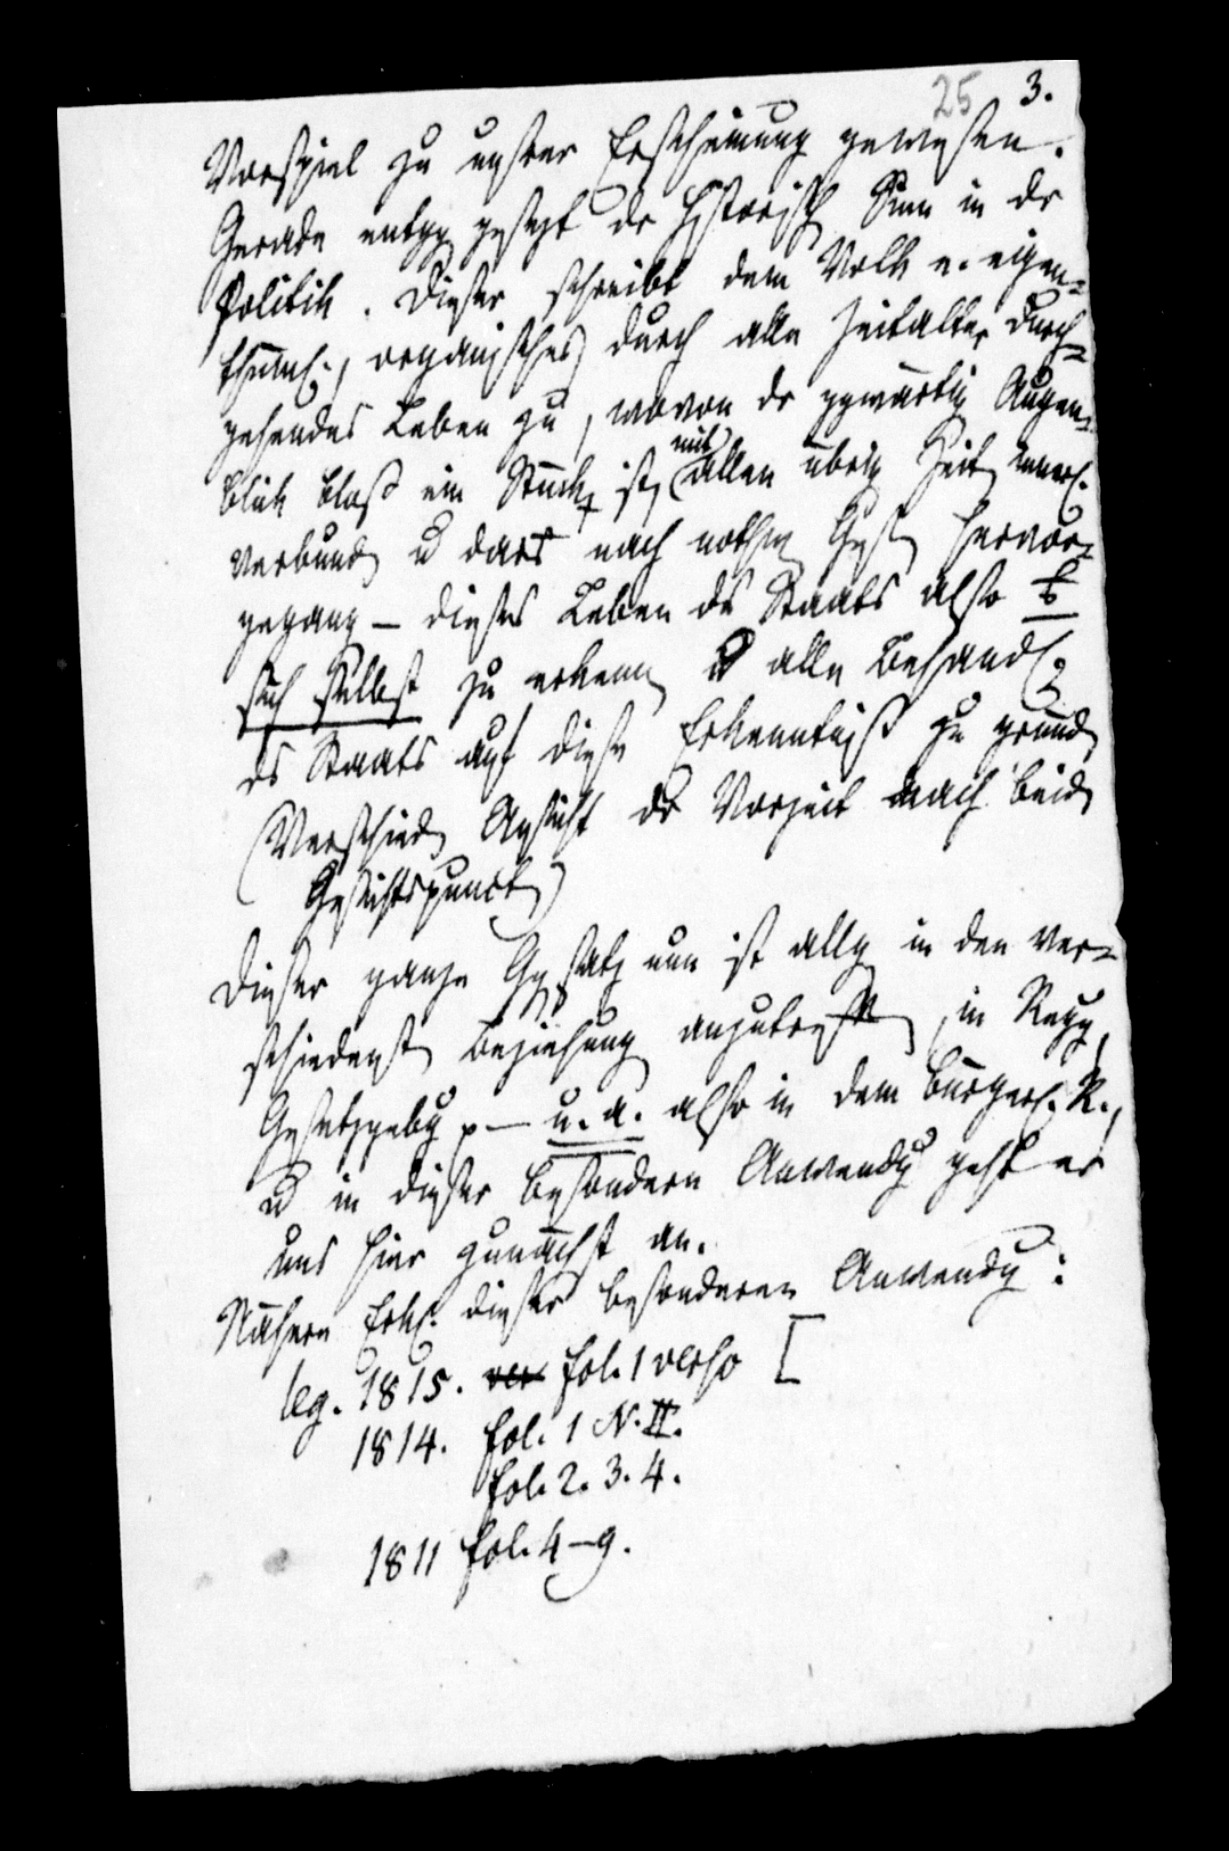 25 3.
Vorspiel zu unsrer Erscheinung gewesen.
Gerade entgg gesetzt dr historisch Sinn in dr
Politik. Dieser schreibt dem Volk e. eigen-
thüml., organisches durch alle Zeitalter durch-
gehendes Leben zu, wovon dr ggwärtig Augen-
blick bloß ein Stück ist, mit allen übrig Zeit innerl.
verbund u daraus nach nothw Gesetz hervor-
gegang – dieses Leben ds Staats also
sich selbst zu erkenn u alle Behandl.
ds Staats auf diese Erkenntniß zu gründ
(Verschied Ansicht dr Vorzeit nach beid
Gesichtspunct)
Dieser ganze Ggsatz nun ist allg in den ver-
schiedenst Beziehung anzutreff, in Regg,
Gesetzgebg p – u. a. also in dem bürgerl. R.,
u in dieser besondern Anwendg geht er
uns hier zunächst an.
Nähere Erkl. dieser besonderen Anwendg:
leg. 1815. ver fol. 1 verso [
1814. fol. 1 N. II.
fol. 2. 3. 4.
1811 fol. 4–9.